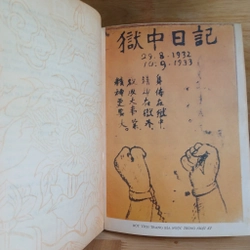 獄中日記
29.8.1932
10.9.1933
身体在獄中
精神在獄外
欲成大事業
精神更要大